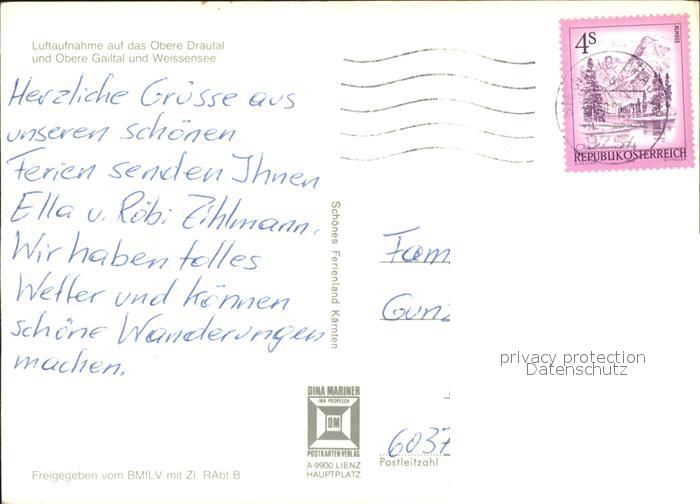 Luftaufnahme auf das Obere Drautal
und Obere Gailtal und Weissensee
Herzliche Grüsse aus
unseren schönen
Ferien senden Ihnen
Ella u. Röbi Zihlmann.
Wir haben tolles
Wetter und können
schöne Wanderungen
machen.
Freigegeben vom BMfLV mit Zl. RAbt B
Schönes Ferienland Kärnten
DINA MARINER
INH POSPESCH
DM
POSTKARTEN-VERLAG
A-9900 LIENZ
HAUPTPLATZ
4S
ALMSEE
REPUBLIK ÖSTERREICH
Fam
Gunz
privacy protection
Datenschutz
6037
Postleitzahl